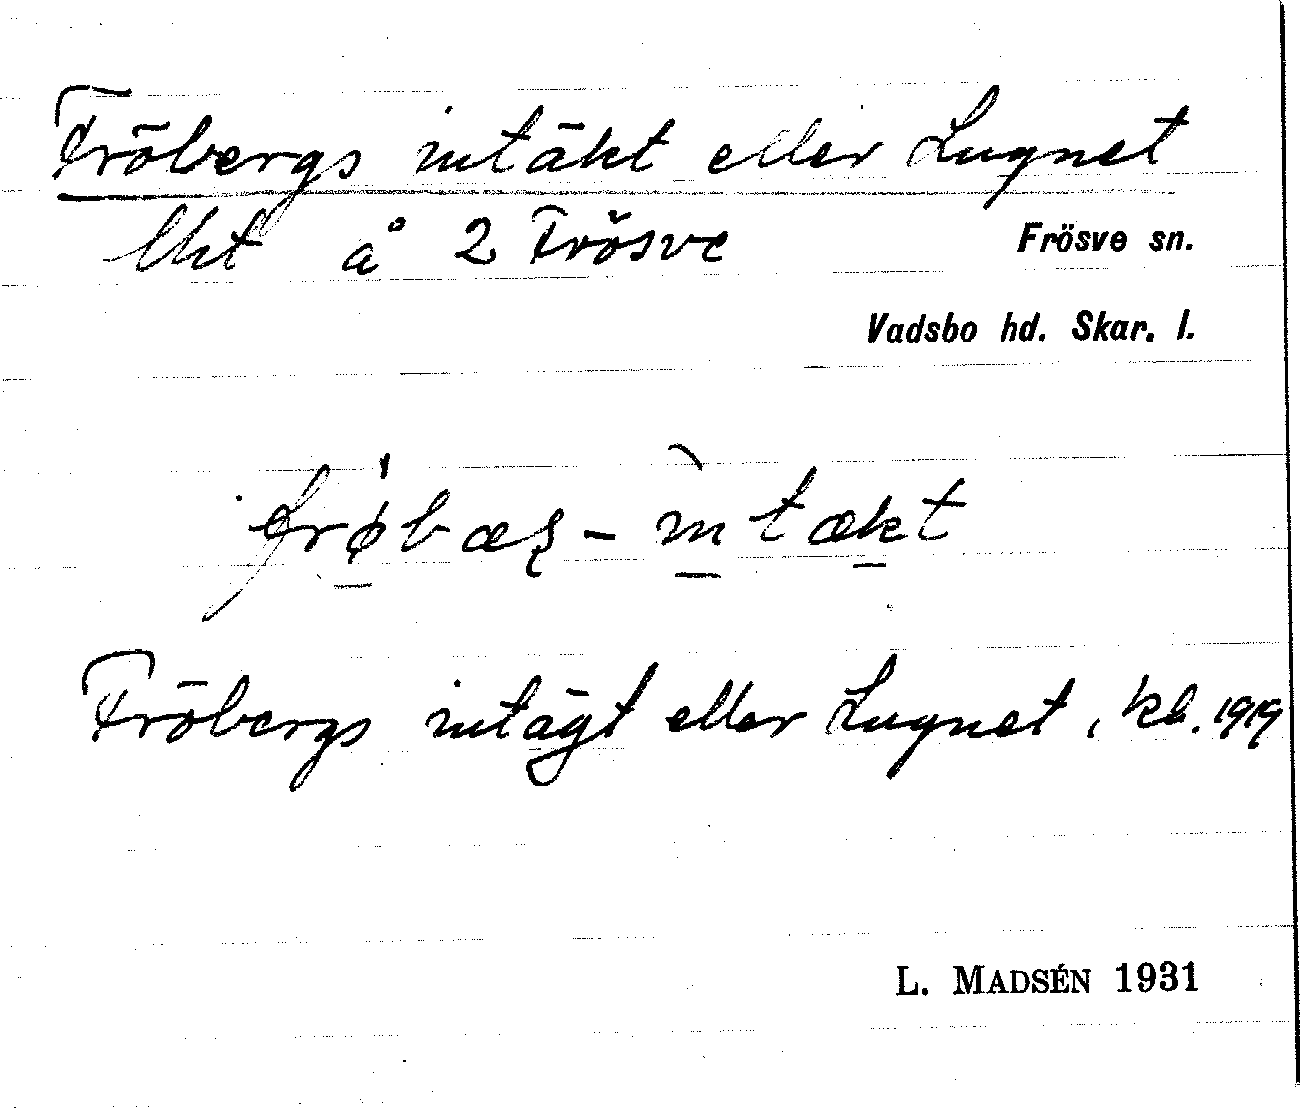 Fröbergs intäkt eller Lugnet
lht å 2 Frösve
Frösve sn.
Vadsbo hd. Skar. l.
frøbæʂ-intækt
Fröbergs intägt eller Lugnet, kb. 1919
L. MADSÉN 1931